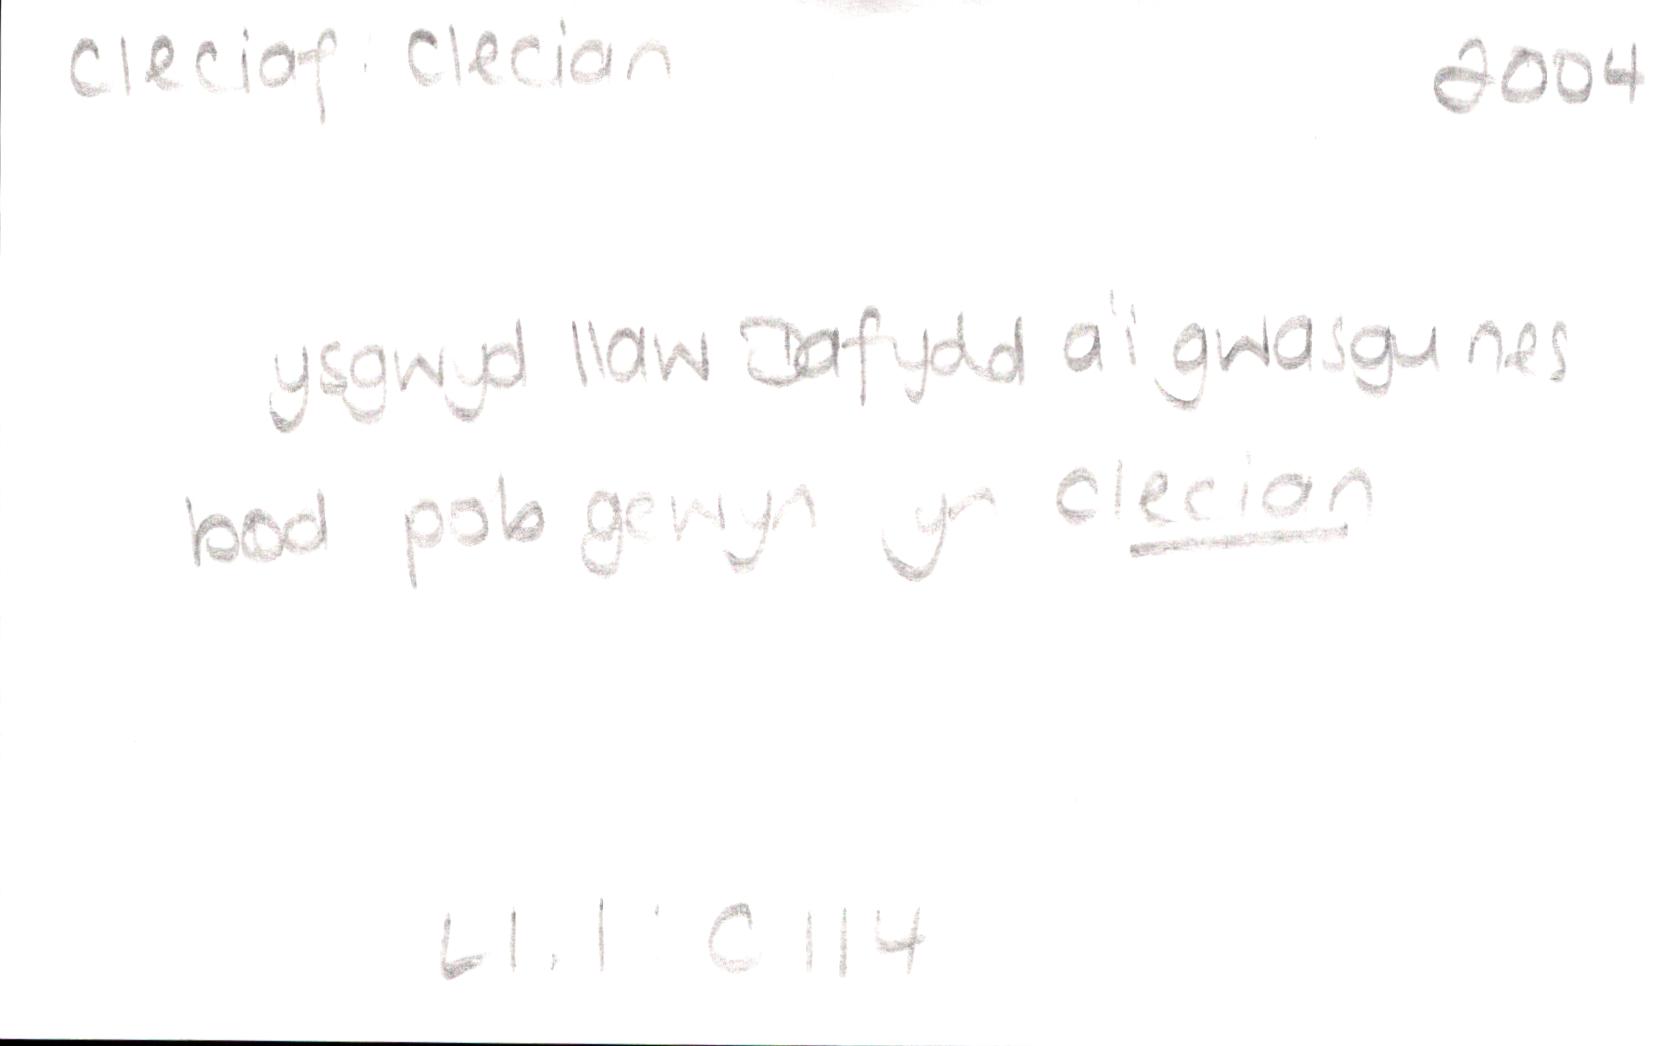 cleciaf: clecian 2004
ysgwyd llaw Dafydd a'i gwasgu nes
bod pob gewyn yn clecian
Ll. 1: C 114